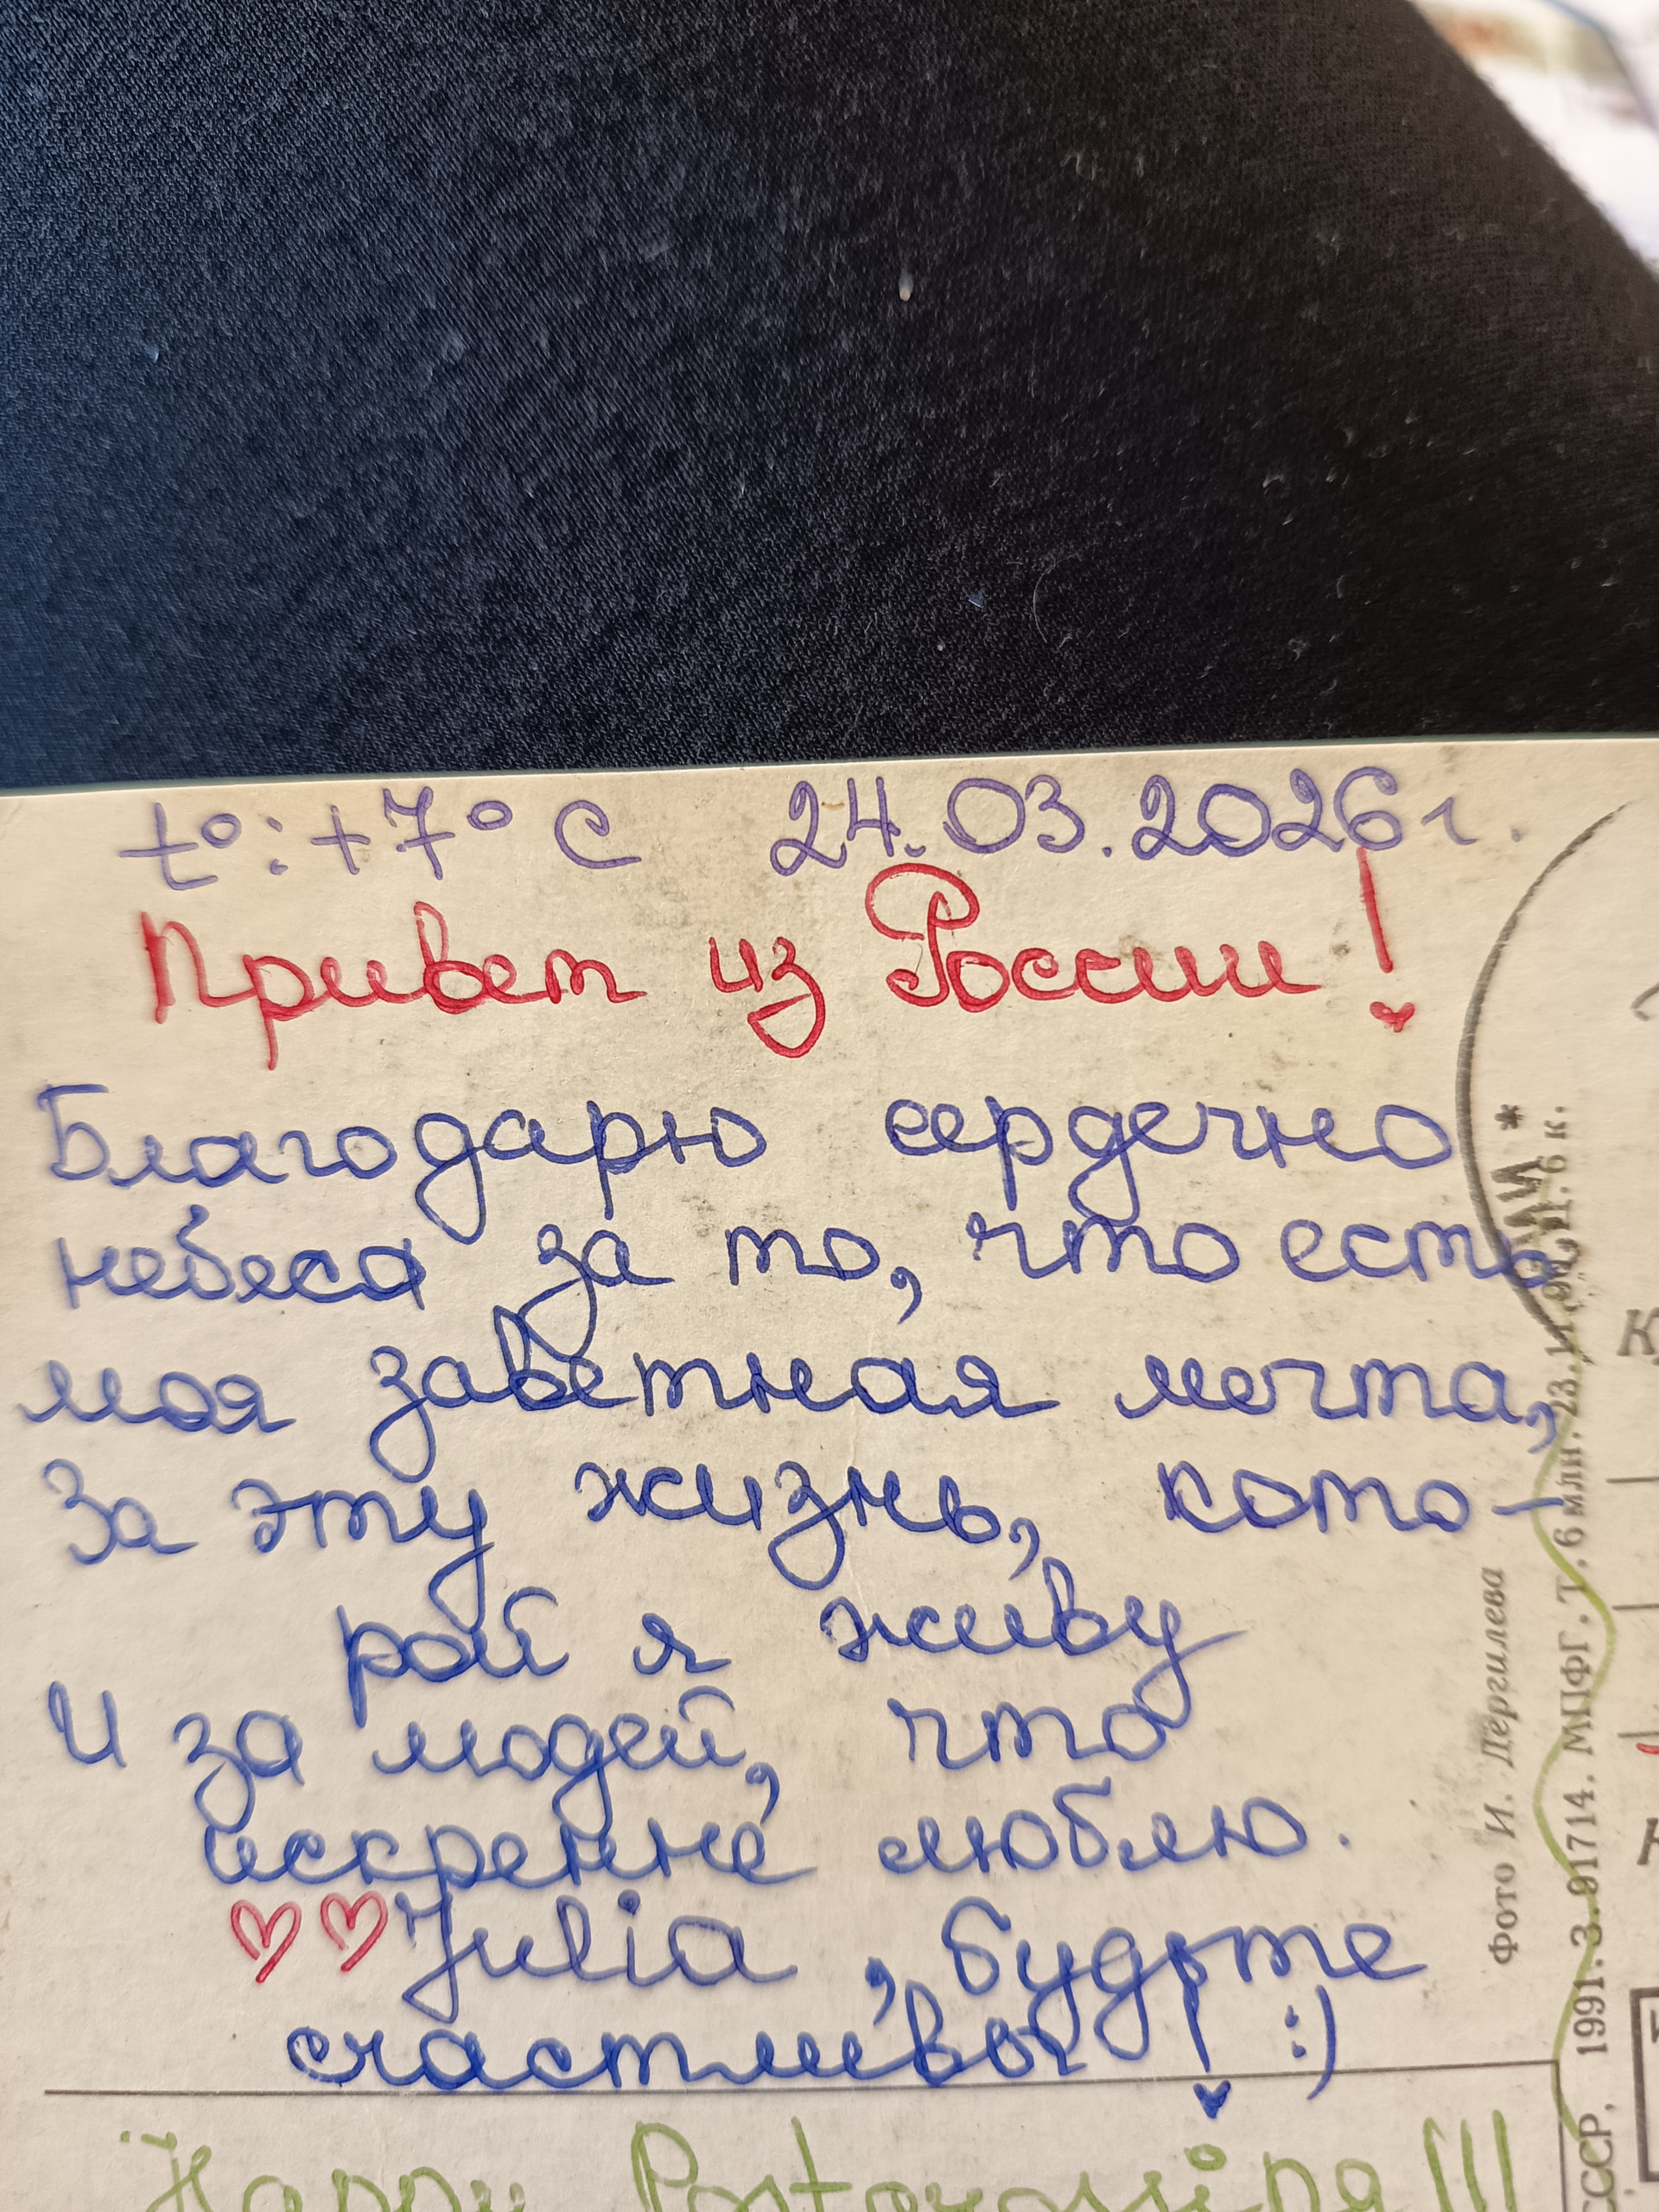 t°: +7° C 24.03.2026 г.
Привет из России!
Благодарю сердечно
небеса за то, что есть
моя заветная мечта,
За эту жизнь, кото-
рой я живу
И за людей, что
искренне люблю.
Julia, будьте
счастливы! :)
Happy Postcrossing!!!
Фото И. Дергилева
СССР, 1991. З. 91714. МПФГ. Т. 6 млн. 23. 6 к.